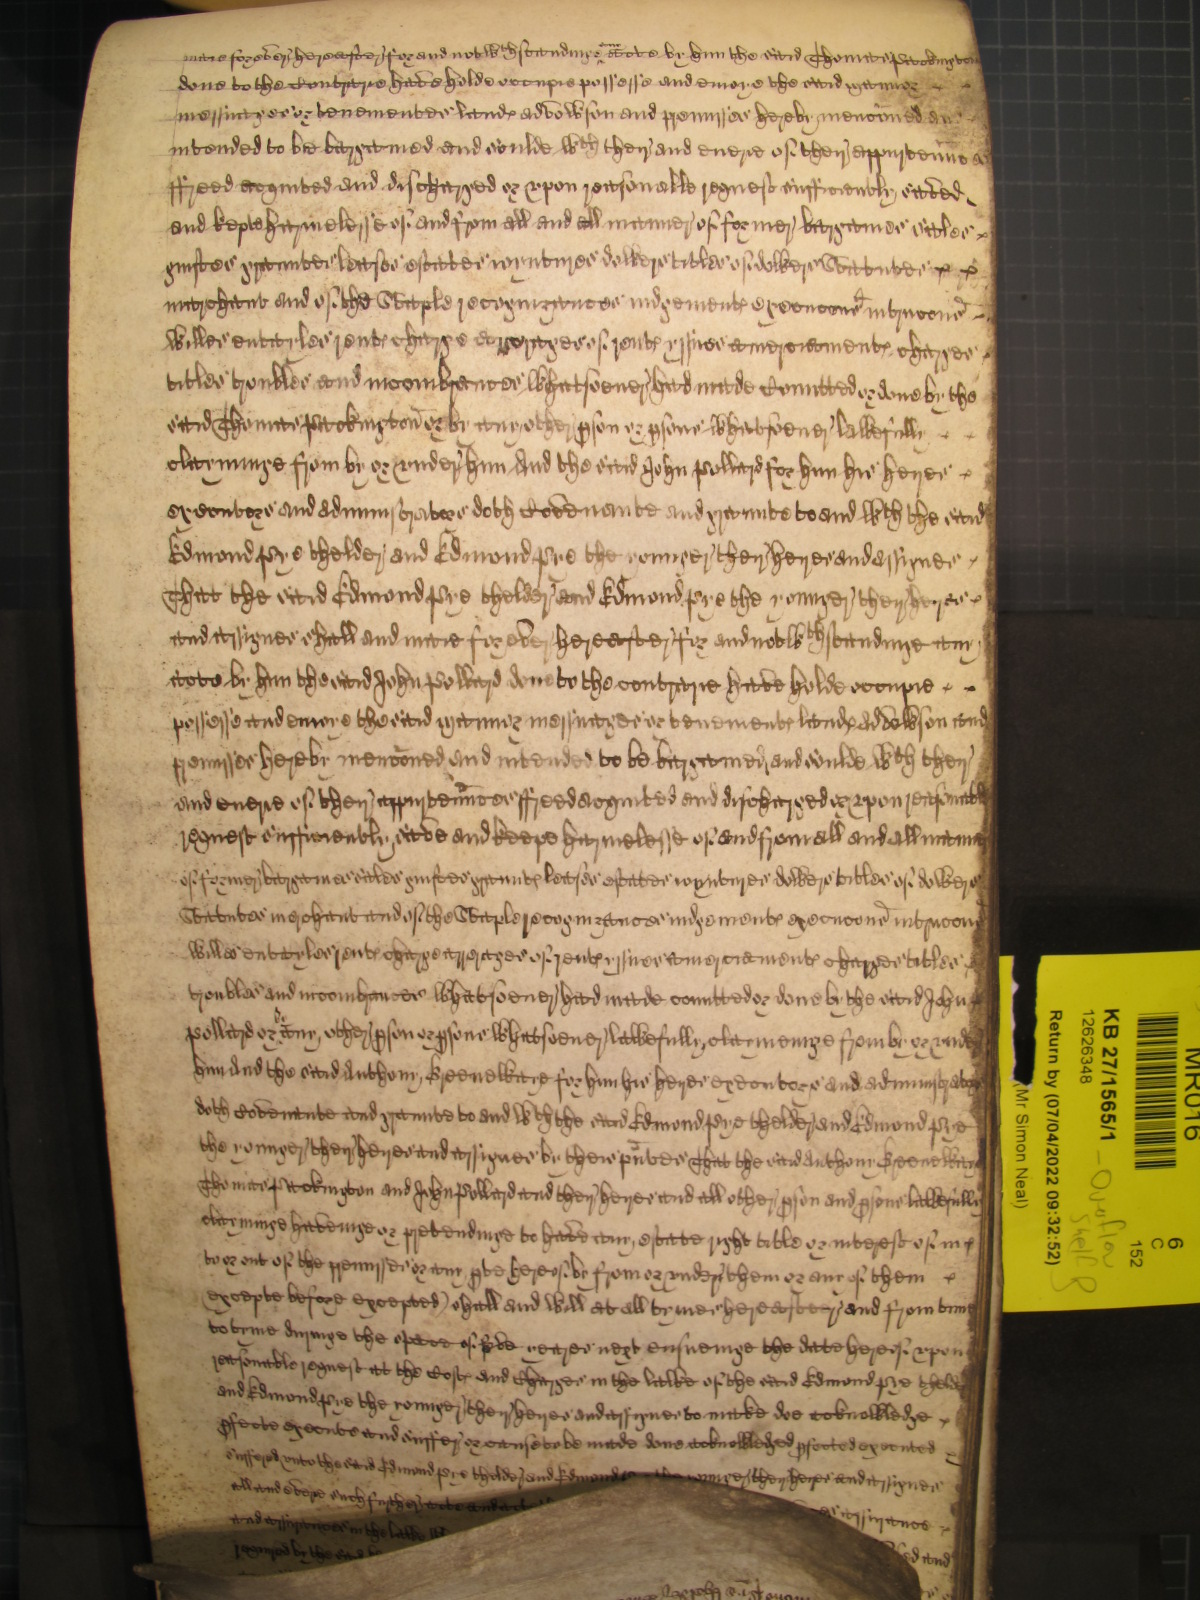 maie forever hereafter for and notwthstandinge any acte by him the said Thomas Packington
done to the Contrarie have holde occupie possesse and enioye the said mannor
messuages or tenementes landes advowson and premisses hereby menconed and
intended to be bargained and soulde wth their and everie of their appurtennces
ffreed acquited and discharged or vpon reasonable request sufficiently saved
and kepte harmelesse of and from all and all manner of former bargaines sales
guiftes grauntes leases estates ioyntures dowers titles of dower Statutes
marchant and of the Staple recognizances iudgementes execucons intrucons
willes entailes rentes charge arrerages of rentes yssues amerciamentes charges
titles troubles and incombrances whatsoever had made Comitted or done by the
said Thomas Packington or by any other pson or psons whatsoever lawefully
clayminge from by or vnder him And the said John Pollard for him his heyres
executors and administrators doth Covenante and graunte to and wth the said
Edmond Pye thelder and Edmond Pye the younger their heyres and assignes
That the said Edmond Pye thelder and Edmond Pye the younger their heyres
and assignes shall and maie for ever hereafter for and notwthstandinge any
acte by him the said John Pollard done to the contrarie have holde occupie
possesse and enioye the said mannor messuages or tenementes landes advowson and
premisses hereby menconed and intended to be bargained and soulde wth their
and everie of their appurtennces ffreed acquited and discharged or vpon reasonable
request sufficiently saved and keepe harmelesse of and from all and all manner
of former bargaines sales guiftes grauntes leases estates ioyntures dowers titles of dowers
Statutes merchant and of the Staple recognizances iudgementes execucons intrucons
willes entayles rentes charge arrerages of rentes yssues amerciamentes charges titles
troubles and incombrances whatsoever had made comitted or done by the said John
Pollard or by any other pson or psons whatsoever lawefully clayminge from by or vnder
him And the said Anthony Greenewaye for him his heyres executors and administrators
doth Covenante and graunte to and wth the said Edmond Pye thelder and Edmond Pye
the younger their heyres and assignes by theis pntes That the said Anthony Greenewaye
Thomas Packington and John Pollard and their heyres and all other pson and psons lawefully
clayminge havinge or pretendinge to have any estate right title or interest of in
to or out of the premisses or any pte thereof by from or vnder them or anie of them
excepte before excepted) shall and will at all tymes hereafter and from time
to tyme duringe the space of fyve yeares next ensueinge the date hereof vpon
reasonable request at the Costes and Charges in the lawe of the said Edmond Pye thelder
and Edmond Pye the younger their heyres and assignes to make doe acknowledge
pfecte execute and suffer or cause to be made done acknowledged pfected executed
suffered vnto the said Edmond Pye thelder and Edmond Pye the younger their heyres and assignes
all and everie such further acte and
and assurances in the lawe
assurance
required by the said
MR016
6
C
152
KB 27/1565/1 - Overflow Shelf
12626348
Return by (07/04/2022 09:32:52)
(Mr Simon Neal)